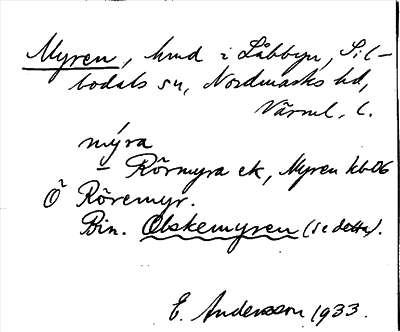 Myren, hmd i Låbbyn, Sil-
bodals sn, Nordmarks hd,
Värml. l.
mýra
– Rörmyra ek, Myren kb-06
Ö Röremyr.
Bin. Olskemyren (se detta).
E. Andersson 1933.